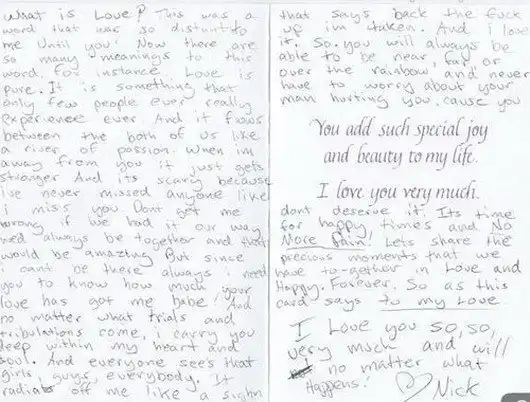 What is Love? This was a
word that was so disturt to
me Until you! Now there are
so many meanings to this
word. For instance Love is
pure. It is something that
only few people ever really
Experience ever. And it flows
between the both of us like
a river of passion. When im
away from you it just gets
stronger And its scary because
ive never missed anyone like
i miss you Dont get me
wrong if we had it our way
wed always be together and that
would be amazing But since
i cant be there always i need
you to know how much your
love has got me babe, And
no matter what trials and
tribulations come, i carry you
deep within my heart and
soul. And everyone sees that
girls, guys, everybody. It
radiats off me like a sighn
that says back the fuck
up im taken. And i love
it. So. you will always be
able to be near, far, or
over the rainbow and never
have to worry about your
man hurting you. cause you
You add such special joy
and beauty to my life.
I love you very much.
dont deserve it. Its time
for happy times and No
More Pain! Lets share the
precious moments that we
have to-gether in Love and
Happy. Forever. So as this
card says to my Love
I Love you so, so,
very much and will
no matter what
Happens!
Nick